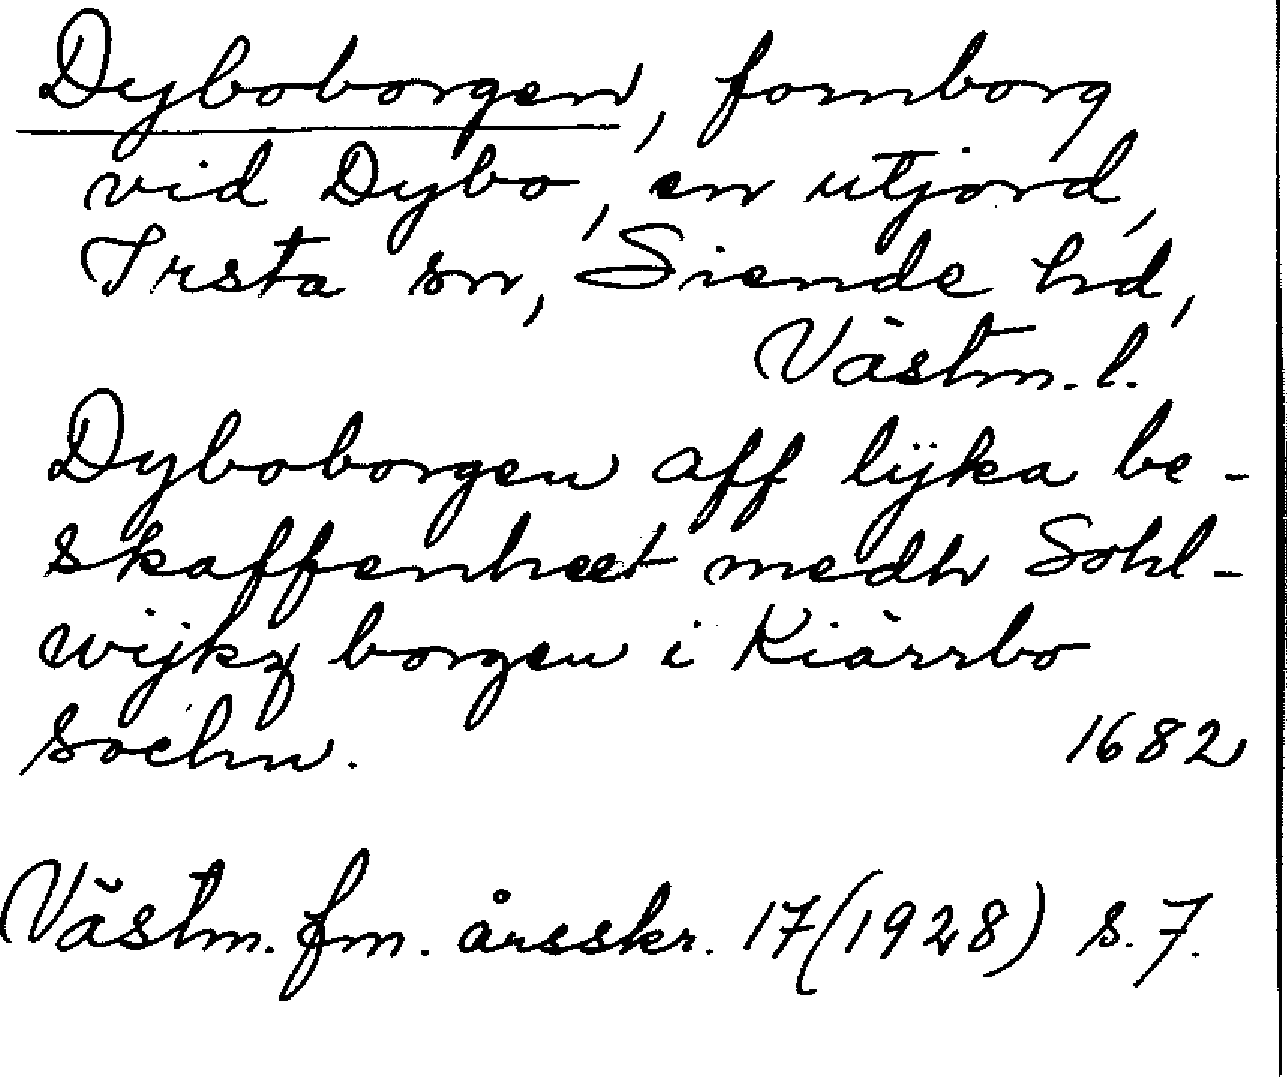 Dyboborgen, fornborg
vid Dybo, en utjord,
Irsta sn, Siende hd,
Västm. l.
Dyboborgen aff lijka be-
skaffenheet medh Sohl-
wijkz borgen i Kiärrbo
sochn. 1682
Västm. fm. årsskr. 17 (1928) s. 7.